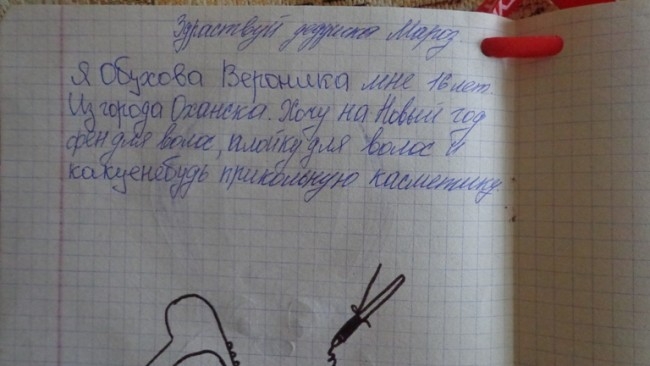 Здраствуй деддиска Мароз.
Я Обухова Вероника мне 16 лет.
Из города Оханска. Хочу на Новый год
фен для волос, плойку для волос и
какуенебудь прикольную касметику